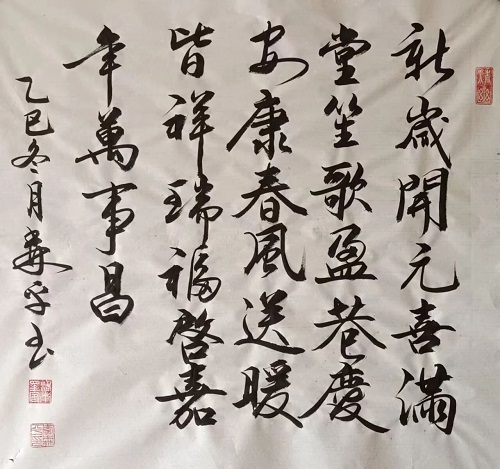 新歲開元喜滿
堂笙歌盈巷慶
安康春風送暖
皆祥瑞福啓嘉
年萬事昌
乙巳冬月